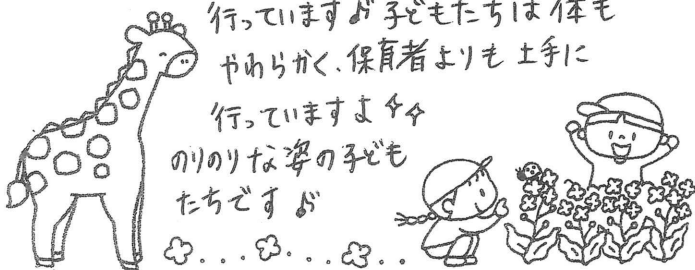 行っています♪ 子どもたちは体も
やわらかく、保育者よりも上手に
行っていますよ✧✧
のりのりな姿の子ども
たちです♪